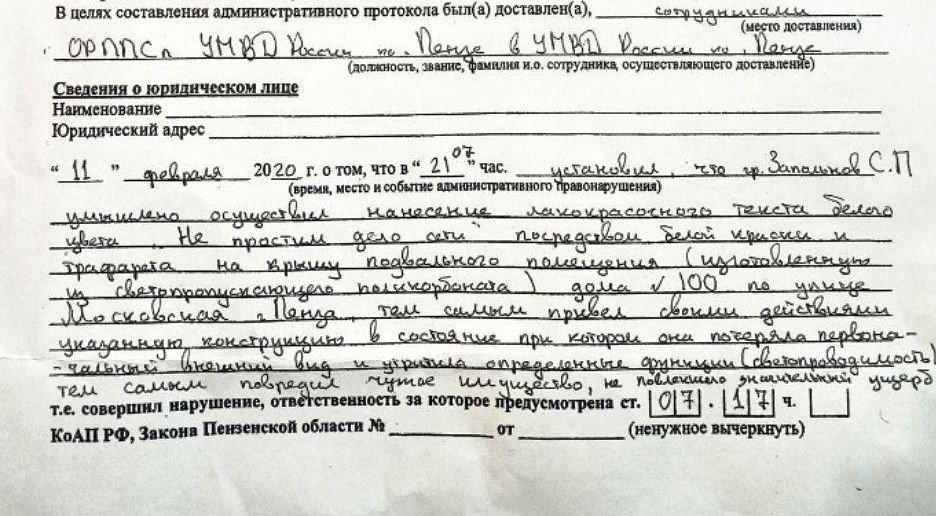 В целях составления административного протокола был(а) доставлен(а), сотрудниками
(место доставления)
ОРППСп УМВД России по г. Пенза в УМВД России по г. Пенза
(должность, звание, фамилия и.о. сотрудника, осуществляющего доставление)
Сведения о юридическом лице
Наименование
Юридический адрес
“ 11 ” февраля 2020 г. о том, что в “ 21 07 ” час. установил, что гр. Запальнов С.П
(время, место и событие административного правонарушения)
умышлено осуществил нанесение лакокрасочного текста белого
цвета „Не простим дело сети“ посредством белой краски и
трафарета на крышу подвального помещения (изготовленную
из светопропускающего поликорбоната) дома № 100 по улице
Московская г. Пенза, тем самым привел своими действиями
указанную конструкцию в состояние при котором она потеряла первона-
-чальный внешний вид и утратила определенные функции (светопроводимость)
тем самым повредил чужое имущество, не повлекшего значительный ущерб
т.е. совершил нарушение, ответственность за которое предусмотрена ст. 07 . 17 ч.
КоАП РФ, Закона Пензенской области № от (ненужное вычеркнуть)